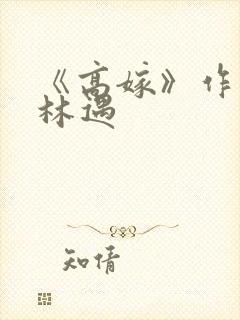 《高嫁》作
林遇
知情